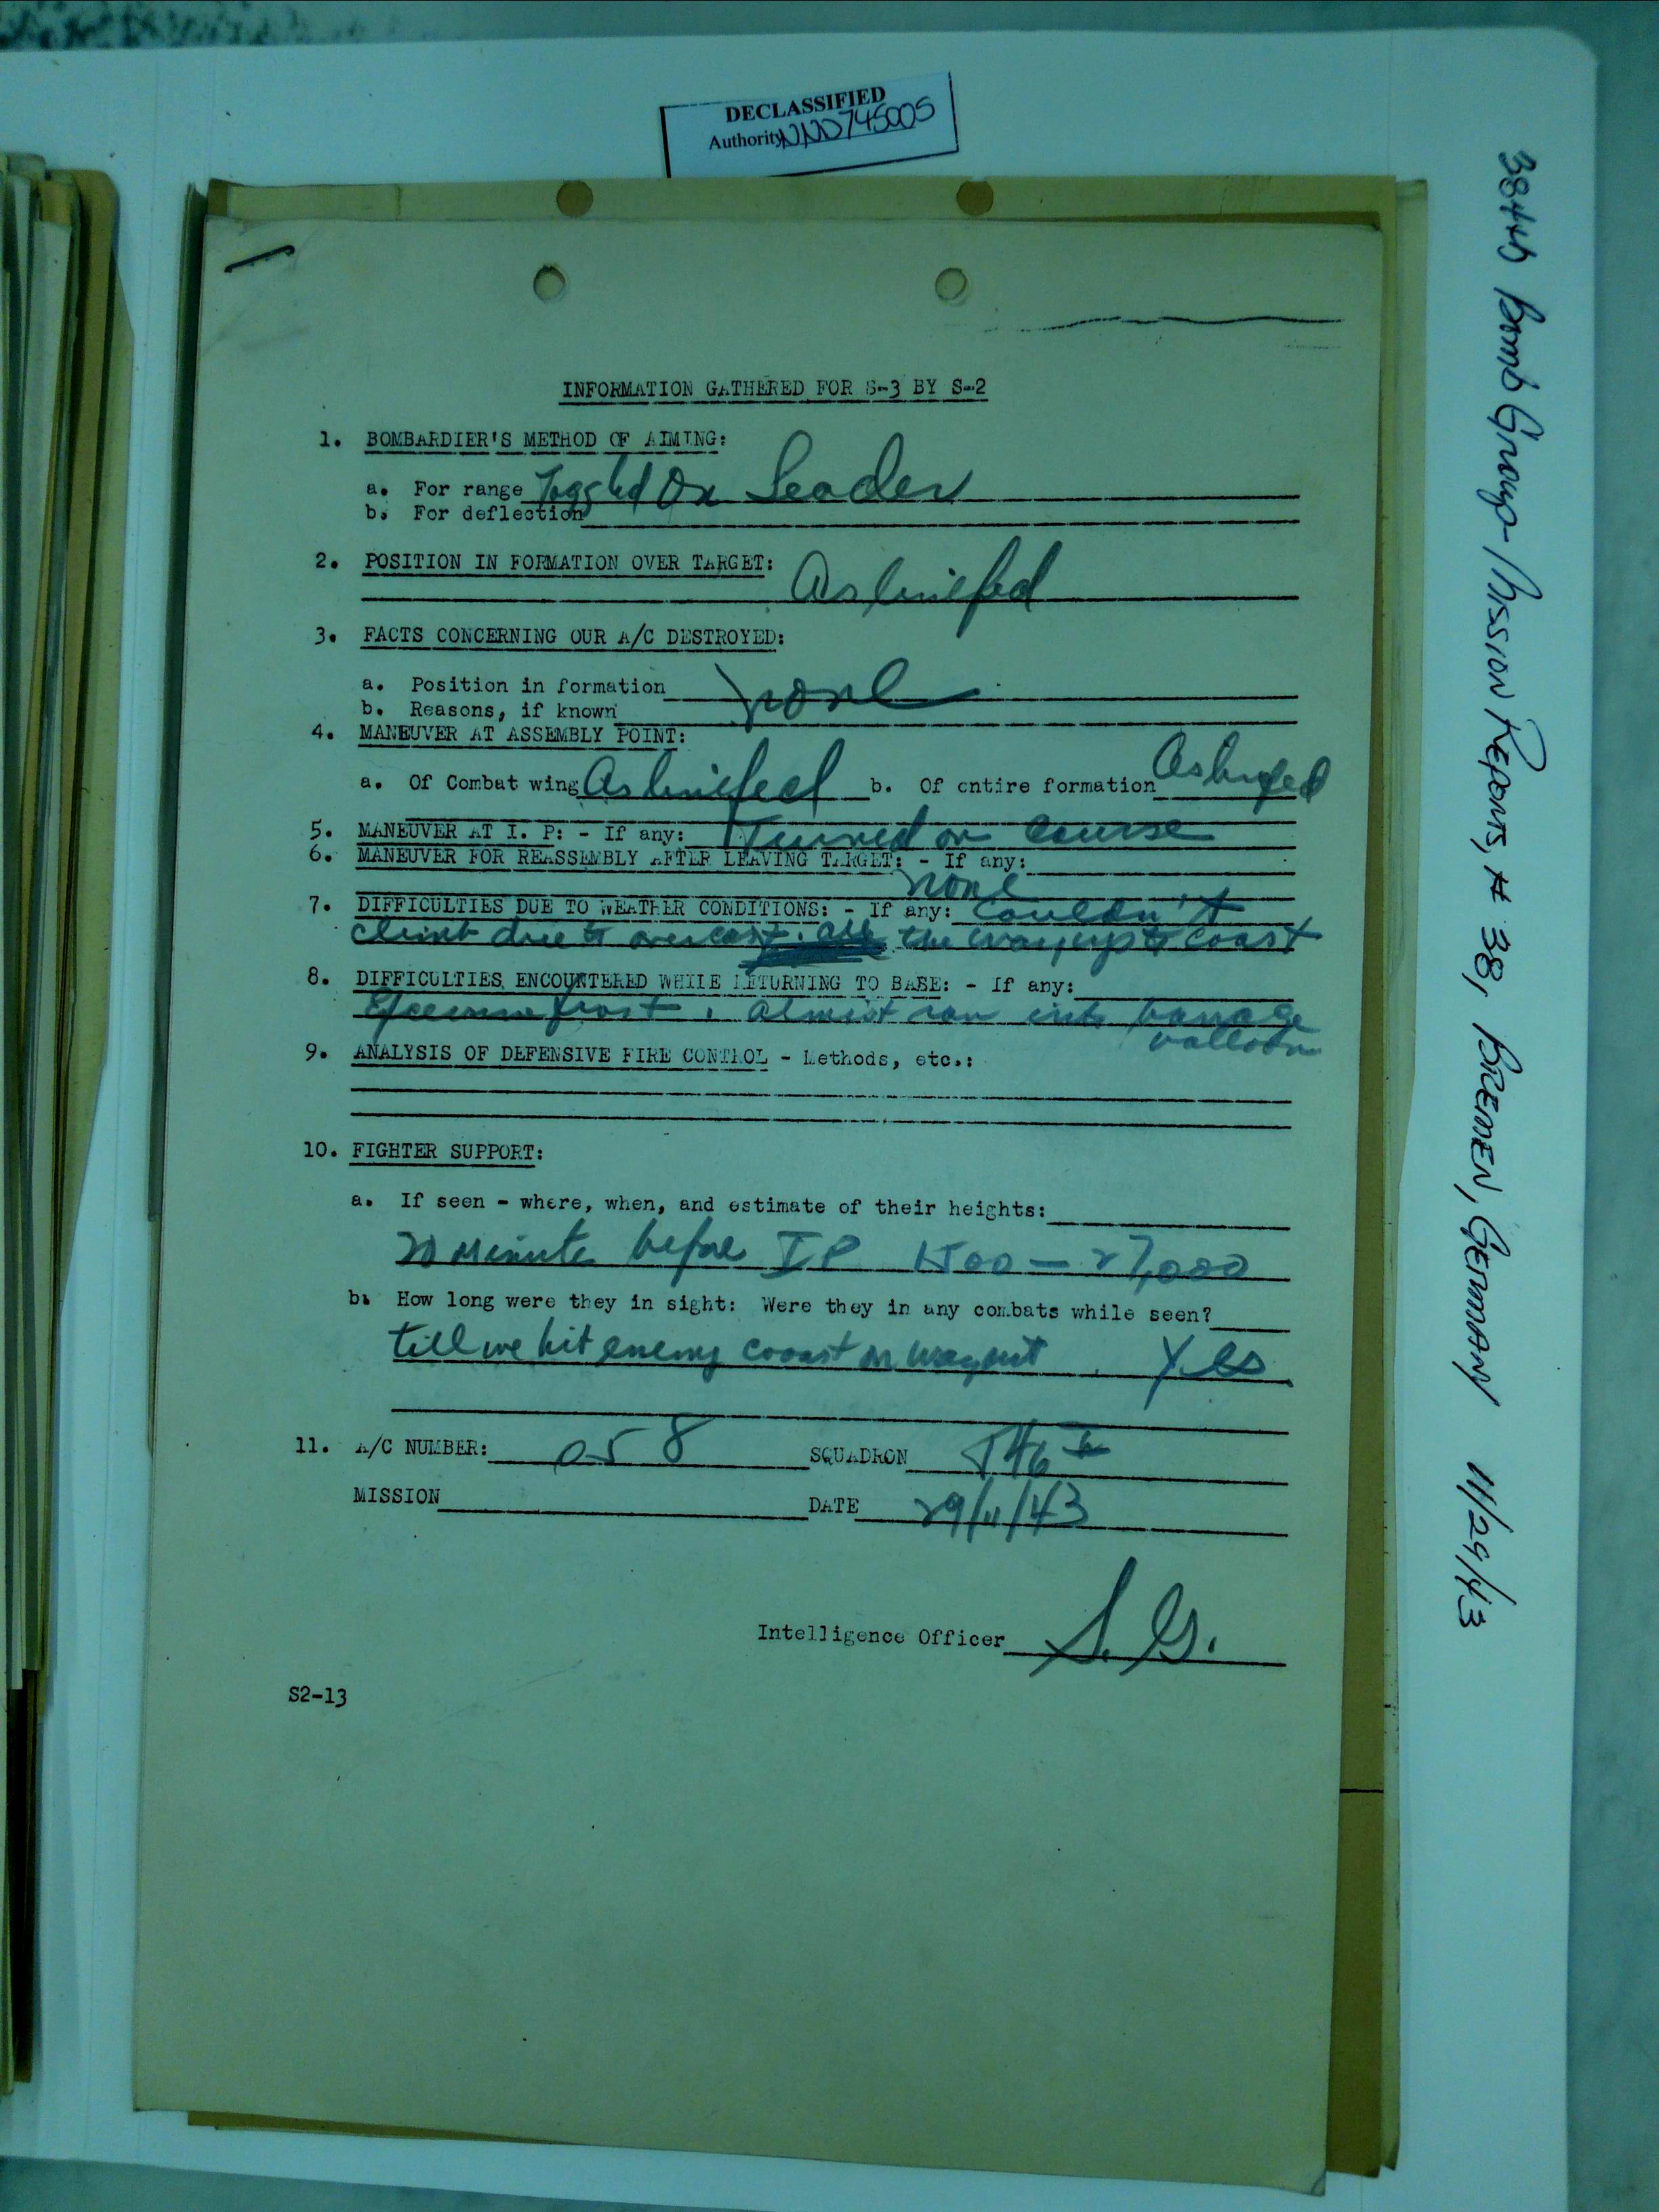 DECLASSIFIED
Authority NND745005
INFORMATION GATHERED FOR S-3 BY S-2
1. BOMBARDIER'S METHOD OF AIMING:
a. For range Toggled On Leader
b. For deflection
2. POSITION IN FORMATION OVER TARGET:
As briefed
3. FACTS CONCERNING OUR A/C DESTROYED:
a. Position in formation none
b. Reasons, if known
4. MANEUVER AT ASSEMBLY POINT:
a. Of Combat wing As briefed b. Of entire formation As briefed
5. MANEUVER AT I. P: - If any: Turned on course
6. MANEUVER FOR REASSEMBLY AFTER LEAVING TARGET: - If any:
none
7. DIFFICULTIES DUE TO WEATHER CONDITIONS: - If any: Couldn't
climb due to overcast. all the way up to coast
8. DIFFICULTIES ENCOUNTERED WHILE RETURNING TO BASE: - If any:
frost. almost ran into barrage
balloon
9. ANALYSIS OF DEFENSIVE FIRE CONTROL - Methods, etc.:
10. FIGHTER SUPPORT:
a. If seen - where, when, and estimate of their heights:
20 minute before IP 1500 - 27,000
b. How long were they in sight: Were they in any combats while seen?
till we hit enemy coast on way out. Yes
11. A/C NUMBER: 058 SQUADRON 546th
MISSION DATE 29/11/43
Intelligence Officer S. G.
S2-13
384th Bomb Group - Mission Reports, # 38, BREMEN, GERMANY 11/29/43